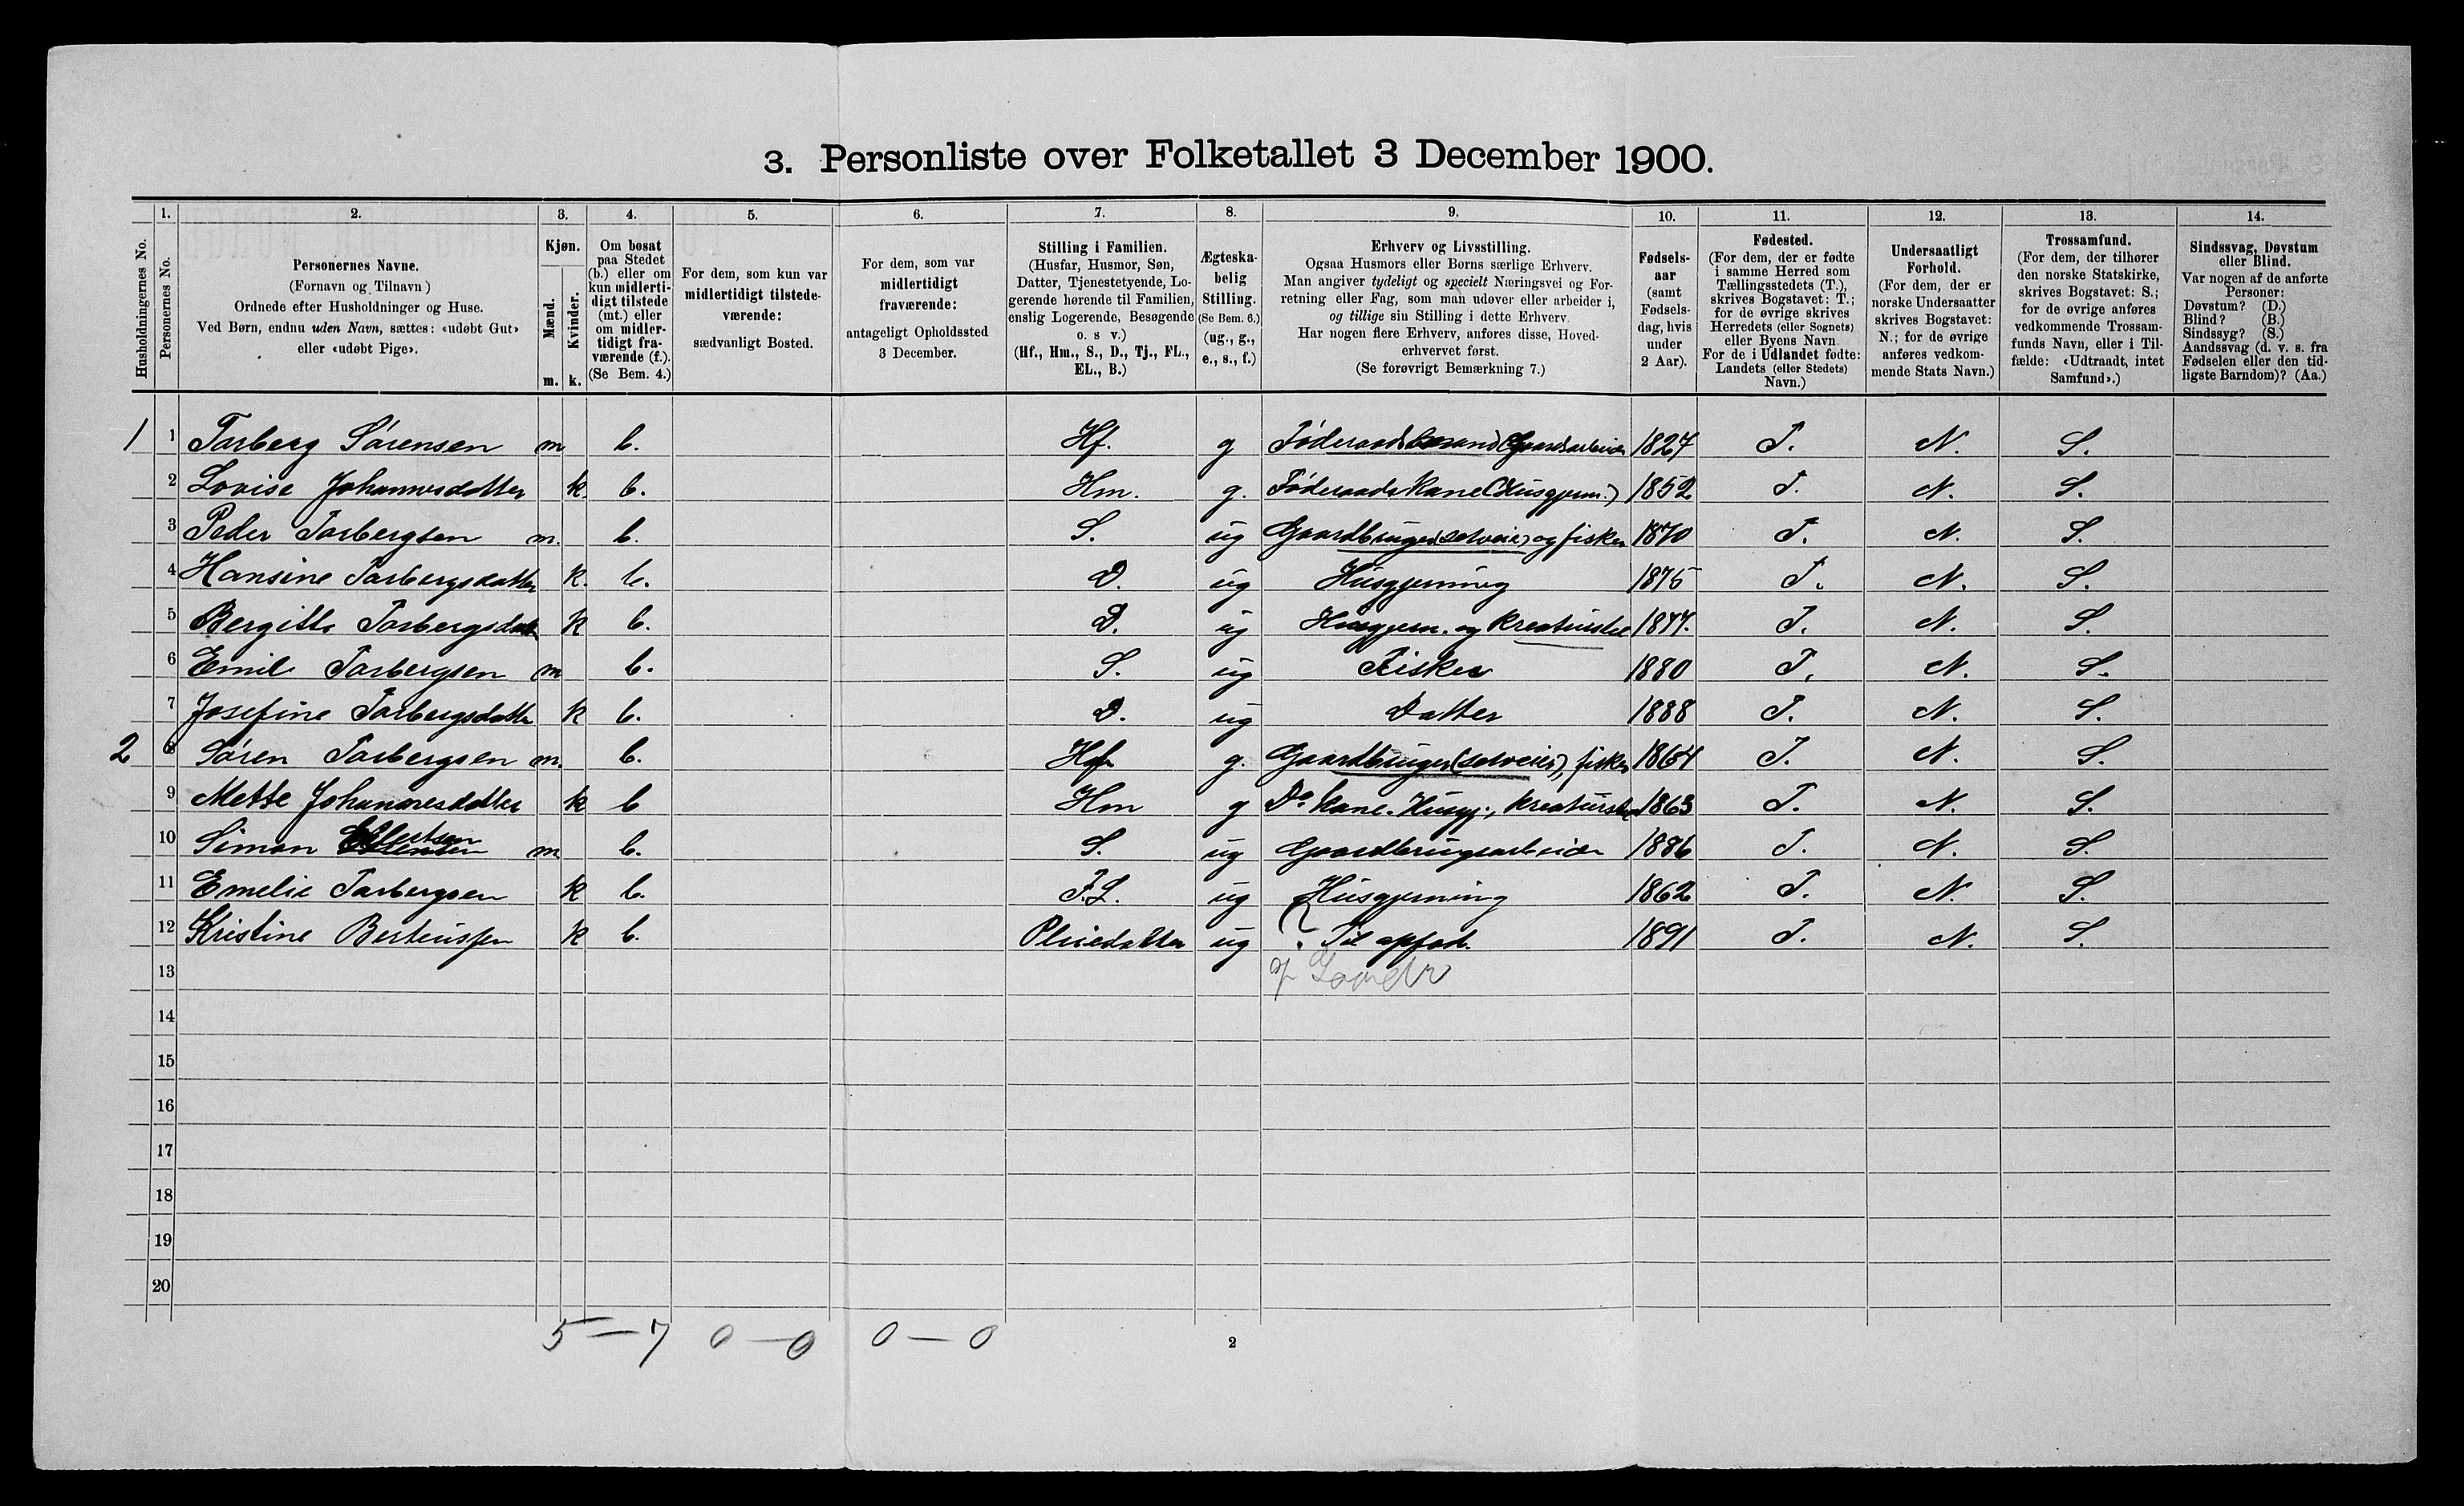 3. Personliste over Folketallet 3 December 1900.
1. 2. 3. 4. 5. 6. 7. 8. 9. 10. 11. 12. 13. 14.
Husholdningernes No.
Personernes No.
Personernes Navne.
(Fornavn og Tilnavn)
Ordnede efter Husholdninger og Huse.
Ved Børn, endnu uden Navn, sættes: «udøbt Gut»
eller «udøbt Pige».
Kjøn.
Mænd.
Kvinder.
m. k.
Om bosat
paa Stedet
(b.) eller om
kun midlerti-
digt tilstede
(mt.) eller
om midler-
tidigt fra-
værende (f.).
(Se Bem. 4.)
For dem, som kun var
midlertidigt tilstede-
værende:
sædvanligt Bosted.
For dem, som var
midlertidigt
fraværende:
antageligt Opholdssted
3 December.
Stilling i Familien.
(Husfar, Husmor, Søn,
Datter, Tjenestetyende, Lo-
gerende hørende til Familien,
enslig Logerende, Besøgende
o. s v.)
(Hf., Hm., S., D., Tj., FL.,
EL., B.)
Ægteska-
belig
Stilling.
(Se Bem. 6.)
(ug., g.,
e., s., f.)
Erhverv og Livsstilling.
Ogsaa Husmors eller Børns særlige Erhverv.
Man angiver tydeligt og specielt Næringsvei og For-
retning eller Fag, som man udøver eller arbeider i,
og tillige sin Stilling i dette Erhverv.
Har nogen flere Erhverv, anføres disse, Hoved-
erhvervet først.
(Se forøvrigt Bemærkning 7.)
Fødsels-
aar
(samt
Fødsels-
dag, hvis
under
2 Aar).
Fødested.
(For dem, der er fødte
i samme Herred som
Tællingsstedets (T.),
skrives Bogstavet: T.;
for de øvrige skrives
Herredets (eller Sognets)
eller Byens Navn
For de i Udlandet fødte:
Landets (eller Stedets)
Navn.)
Undersaatligt
Forhold.
(For dem, der er
norske Undersaatter
skrives Bogstavet:
N.; for de øvrige
anføres vedkom-
mende Stats Navn.)
Trossamfund.
(For dem, der tilhører
den norske Statskirke,
skrives Bogstavet: S.;
for de øvrige anføres
vedkommende Trossam-
funds Navn, eller i Til-
fælde: «Udtraadt, intet
Samfund».)
Sindssvag, Døvstum
eller Blind.
Var nogen af de anførte
Personer:
Døvstum? (D.)
Blind? (B.)
Sindssyg? (S.)
Aandssvag (d. v. s. fra
Fødselen eller den tid-
ligste Barndom)? (Aa.)
1 1 Torberg Sørensen m b. Hf. g Føderaadsmand Gaardsarbeider 1827 T. N. S.
2 Lovise Johannesdatter k b. Hm. g. Føderaadskone (Husgjern.) 1852 T. N. S.
3 Peder Torbergsen m. b. S. ug Gaardbruger (selveier) og fisker 1870 T. N. S.
4 Hansine Torbergsdatter k. b. D. ug Husgjerning 1875 T. N. S.
5 Bergitte Torbergsdatter k b. D. ug Husgjern. og Kreaturstel 1877. T. N. S.
6 Emil Torbergsen m b. S. ug Fisker 1880 T. N. S.
7 Josefine Torbergsdatter k b. D. ug Datter 1888 T. N. S.
2 8 Søren Torbergsen m. b. Hf. g. Gaardbruger (selveier), fisker 1864 T. N. S.
9 Mette Johannesdatter k b Hm g Do Kone. Husgj., Kreaturstel 1863 T. N. S.
10 Simon Ellertsen m b. S. ug Gaardbrugsarbeider 1886 T. N. S.
11 Emelie Torbergsen k b. F.L. ug Husgjerning 1862 T. N. S.
12 Kristine Berteussen k b. Pleiedatter ug Til opfod. 1891 T. N. S.
13
14
15
16
17
18
19
20
5 – 7 0 – 0 0 – 0
2